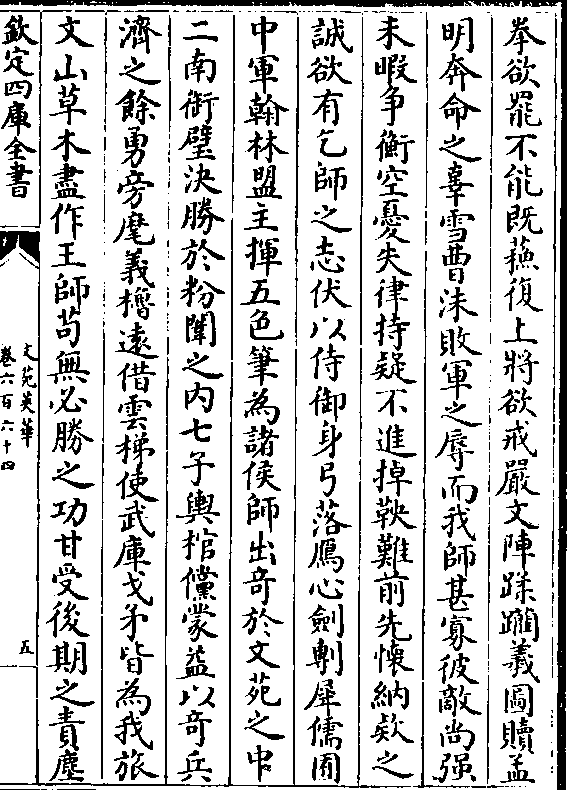 拳欲罷不能既蘓復上將欲戒嚴文陣蹂躪義圖贖孟
明奔命之辜雪曹沬敗軍之辱而我師甚寡彼敵尚强
未暇争衡空憂失律持疑不進掉鞅難前先懷納欵之
誠欲有乞師之志伏以侍御身弓落鴈心劍剸犀儒囿
中軍翰林盟主揮五色筆為諸侯師出奇於文苑之中
二南銜璧決勝於粉闈之内七子輿棺儻蒙益以奇兵
濟之餘勇旁麾義櫓遠借雲梯使武庫戈矛皆為我旅
文山草木盡作王師苟無必勝之功甘受後期之責塵
欽定四庫全書
文苑英華
卷六百六十四
五